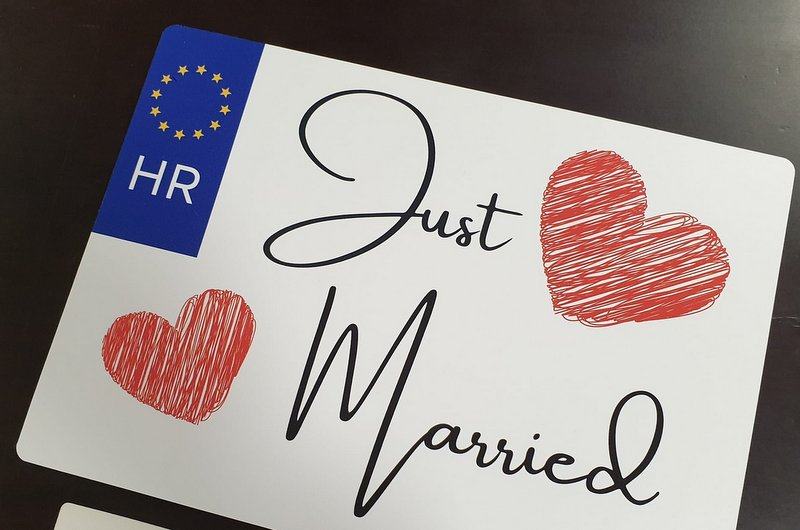 HR
Just
Married